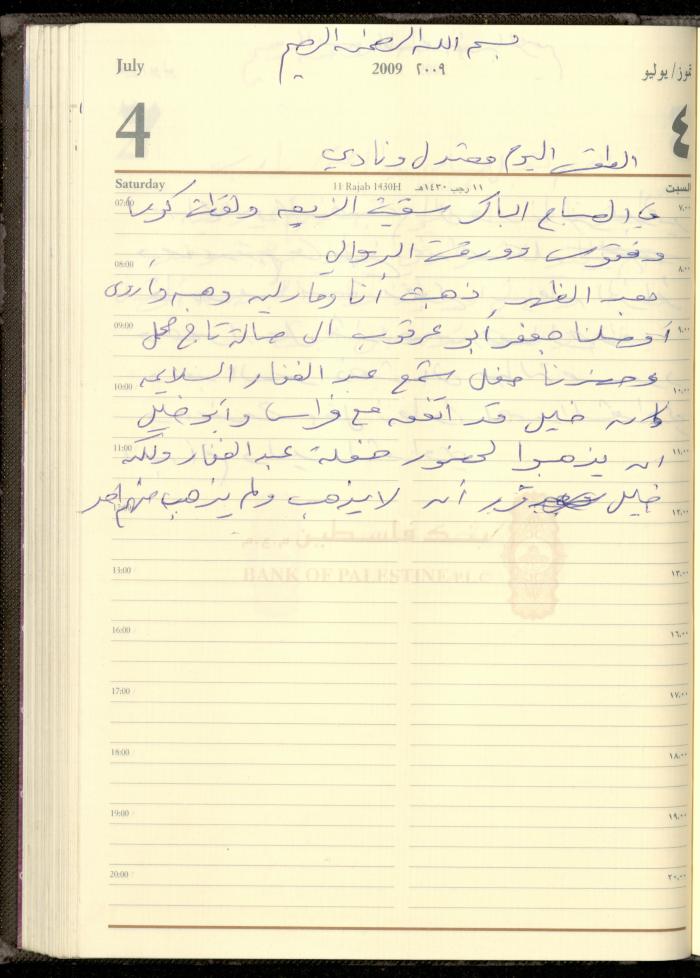 بسم الله الرحمن الرحيم
July
2009 ٢٠٠٩
تموز/يوليو
4
٤
الطقس اليوم معتدل ونادي
Saturday
11 Rajab 1430H ١١ رجب ١٤٣٠هـ
السبت
07:00 في الصباح الباكر سقيت الزريعه ولقطت كوسا ٧,٠٠
وفقوس وورقت الدوالي
08:00 ٨,٠٠
بعد الظهر ذهبت أنا وهبه وأروى
09:00 أوصلنا جعفر أبو عرقوب الى صالة تاج محل ٩,٠٠
وحضرنا حفل عبد الغفار السلايمه
10:00 ١٠,٠٠
كان خليل قد اتفق مع فراس وأبو خليل
11:00 ان يذهبوا لحضور حفلة عبد الغفار ولكن ١١,٠٠
خليل قرر أن لا يذهب ولم يذهب منهم احد
١٢,٠٠
بنك فلسطين م.ع.م
BANK OF PALESTINE PLC
13:00 ١٣,٠٠
16:00 ١٦,٠٠
17:00 ١٧,٠٠
18:00 ١٨,٠٠
19:00 ١٩,٠٠
20:00 ٢٠,٠٠